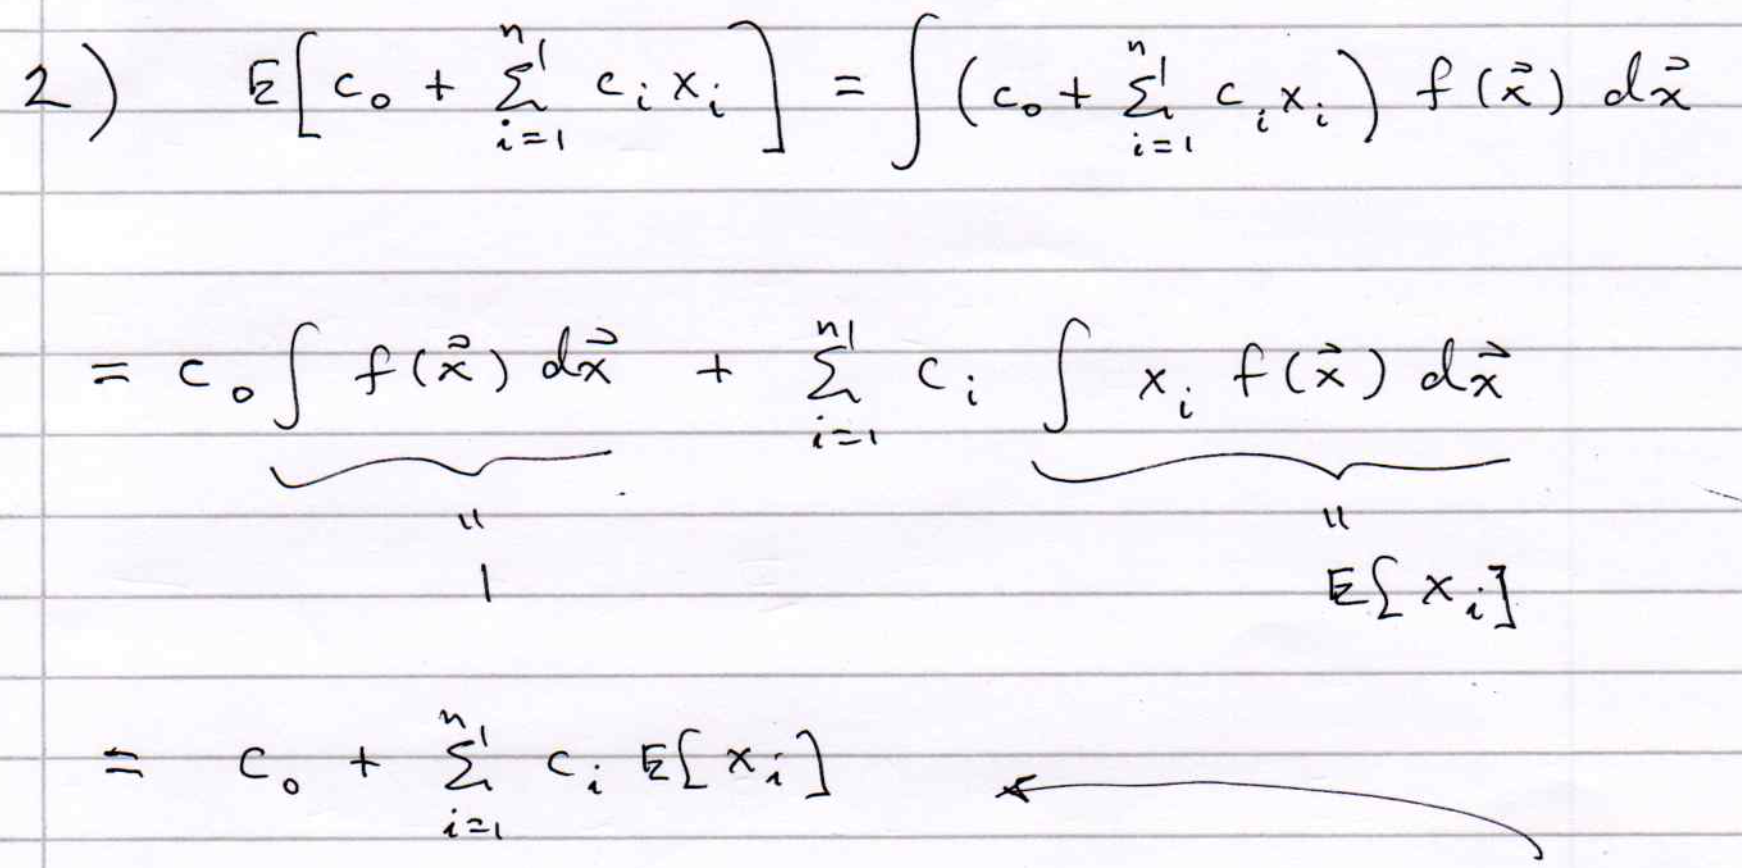 2) E[c₀ + Σᵢ₌₁ⁿ cᵢ xᵢ] = ∫ (c₀ + Σᵢ₌₁ⁿ cᵢ xᵢ) f(x⃗) dx⃗
= c₀ ∫ f(x⃗) dx⃗ + Σᵢ₌₁ⁿ cᵢ ∫ xᵢ f(x⃗) dx⃗
= =
1 E[xᵢ]
= c₀ + Σᵢ₌₁ⁿ cᵢ E[xᵢ]